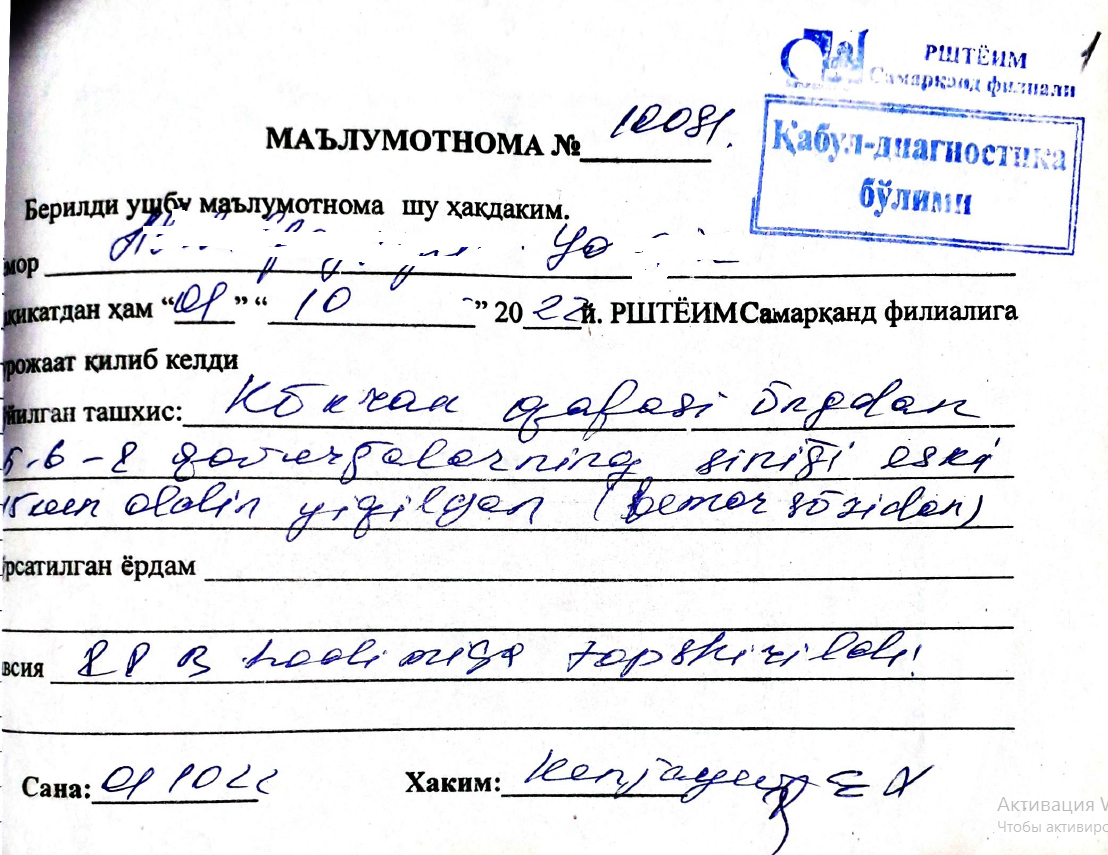 1
РШТЁИМ
Самарқанд филиали
Қабул-диагностика
бўлими
МАЪЛУМОТНОМА № 10081.
Берилди ушбу маълумотнома шу ҳақдаким.
мор
қиқатдан ҳам “01” “10” 2022й. РШТЁИМ Самарқанд филиалига
рожаат қилиб келди
йилган ташхис: Kõkrak qafasi õngdan
5-6-8 qovurg̃alarning sinig̃i eski
15 kun oldin yiqilgan (bemor sõzidan)
рсатилган ёрдам
всия hodimiga topshirildi!
Сана: 01 10 22 Хаким:
Активация W
Чтобы активиро